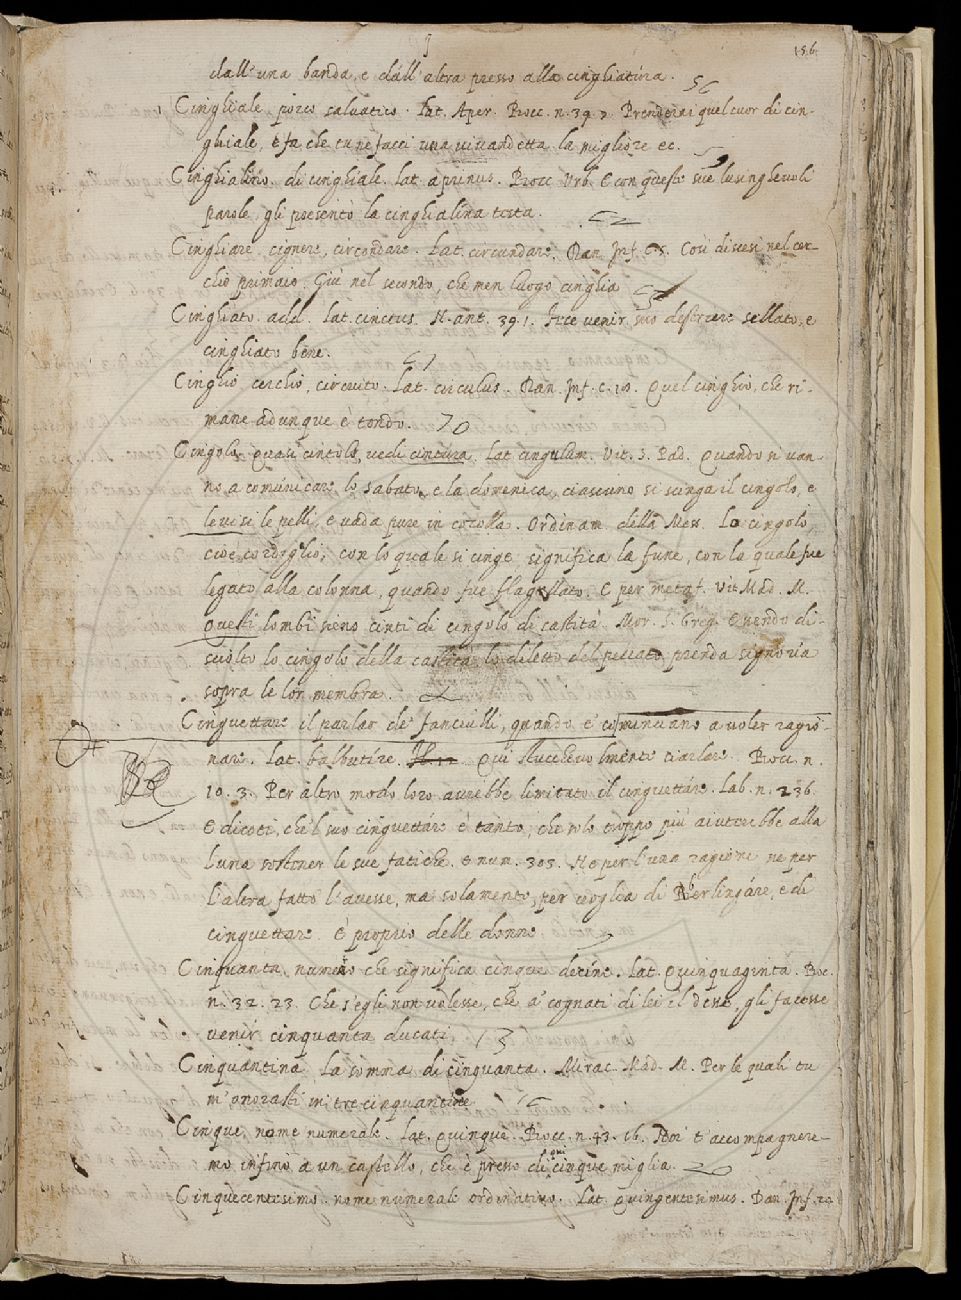 156
dall'una banda, e dall'altra presso alla cinghiatura.
56
Cinghiale porco salvatico. Lat. Aper. Bocc. n. 39. Prenderai quel cuor di cin-
ghiale, e fa che tu ne facci una vivandetta la migliore ec.
Cinghialino di cinghiale. lat. aprinus. Bocc. Urb. E con queste sue lusinghevoli
parole gli presentò la cinghialina testa.
Cinghiare, cignere, circondare. Lat. circundare. Dan. Inf. C. 5. Così discesi nel cer-
chio primaio Giù nel secondo, che men luogo cinghia
Cinghiato. add. Lat. cinctus. N. ant. 39. 1. Fece venir suo destriere sellato, e
cinghiato bene.
Cinghio, cerchio, circuito. Lat. circulus. Dan. Inf. c. 18. Quel cinghio, che ri-
mane adunque è tondo. 70
Cingolo, quasi cintolo, vedi cintura. Lat. cingulum. Vit. S. Pad. Quando si van-
no a comunicare lo sabato, e la domenica, ciascuno si scinga il cingolo, e
levisi le pelli, e vada pure in cocolla. Ordinam. della Mess. Lo cingolo,
cioè cordiglio, con lo quale si cinge, significa la fune, con la quale fue
legato alla colonna, quando fue flagellato. E per metaf. Vit. Mad. M.
Questi lombi sieno cinti di cingolo di castità. Mor. S. Greg. Essendo di-
sciolto lo cingolo della castità lo diletto del peccato prenda signoria
sopra le lor membra.
Cinguettare il parlar de' fanciulli, quando e' cominciano a voler ragio-
nare. Lat. balbutire. Qui stucchevolmente ciarlare. Bocc. n.
10. 3. Per altro modo loro avrebbe limitato il cinguettare. Lab. n. 236.
E dicoti, che'l suo cinguettare è tanto, che solo troppo più aiuterebbe alla
Luna sostener le sue fatiche. E num. 303. Nè per l'una ragione ne per
l'altra fatto l'avesse, ma solamente, per voglia di Berlingare, e di
cinguettare. È proprio delle donne.
Cinquanta, numero che significa cinque decine. Lat. Quinquaginta. Boc.
n. 32. 23. Che s'egli non volesse, che a' cognati di lei el desse, gli facesse
venir cinquanta ducati 13
Cinquantina. La somma di cinquanta. Mirac. Mad. M. Per le quali tu
m'onorasti in tre cinquantine
Cinque, nome numerale. Lat. Quinque. Bocc. n. 43. 16. Noi t'accompagnere-
mo infino a un castello, che è presso di qui cinque miglia.
Cinquecentesimo. nome numerale ordinativo. Lat. Quingentesimus. Dan. Inf. 20.